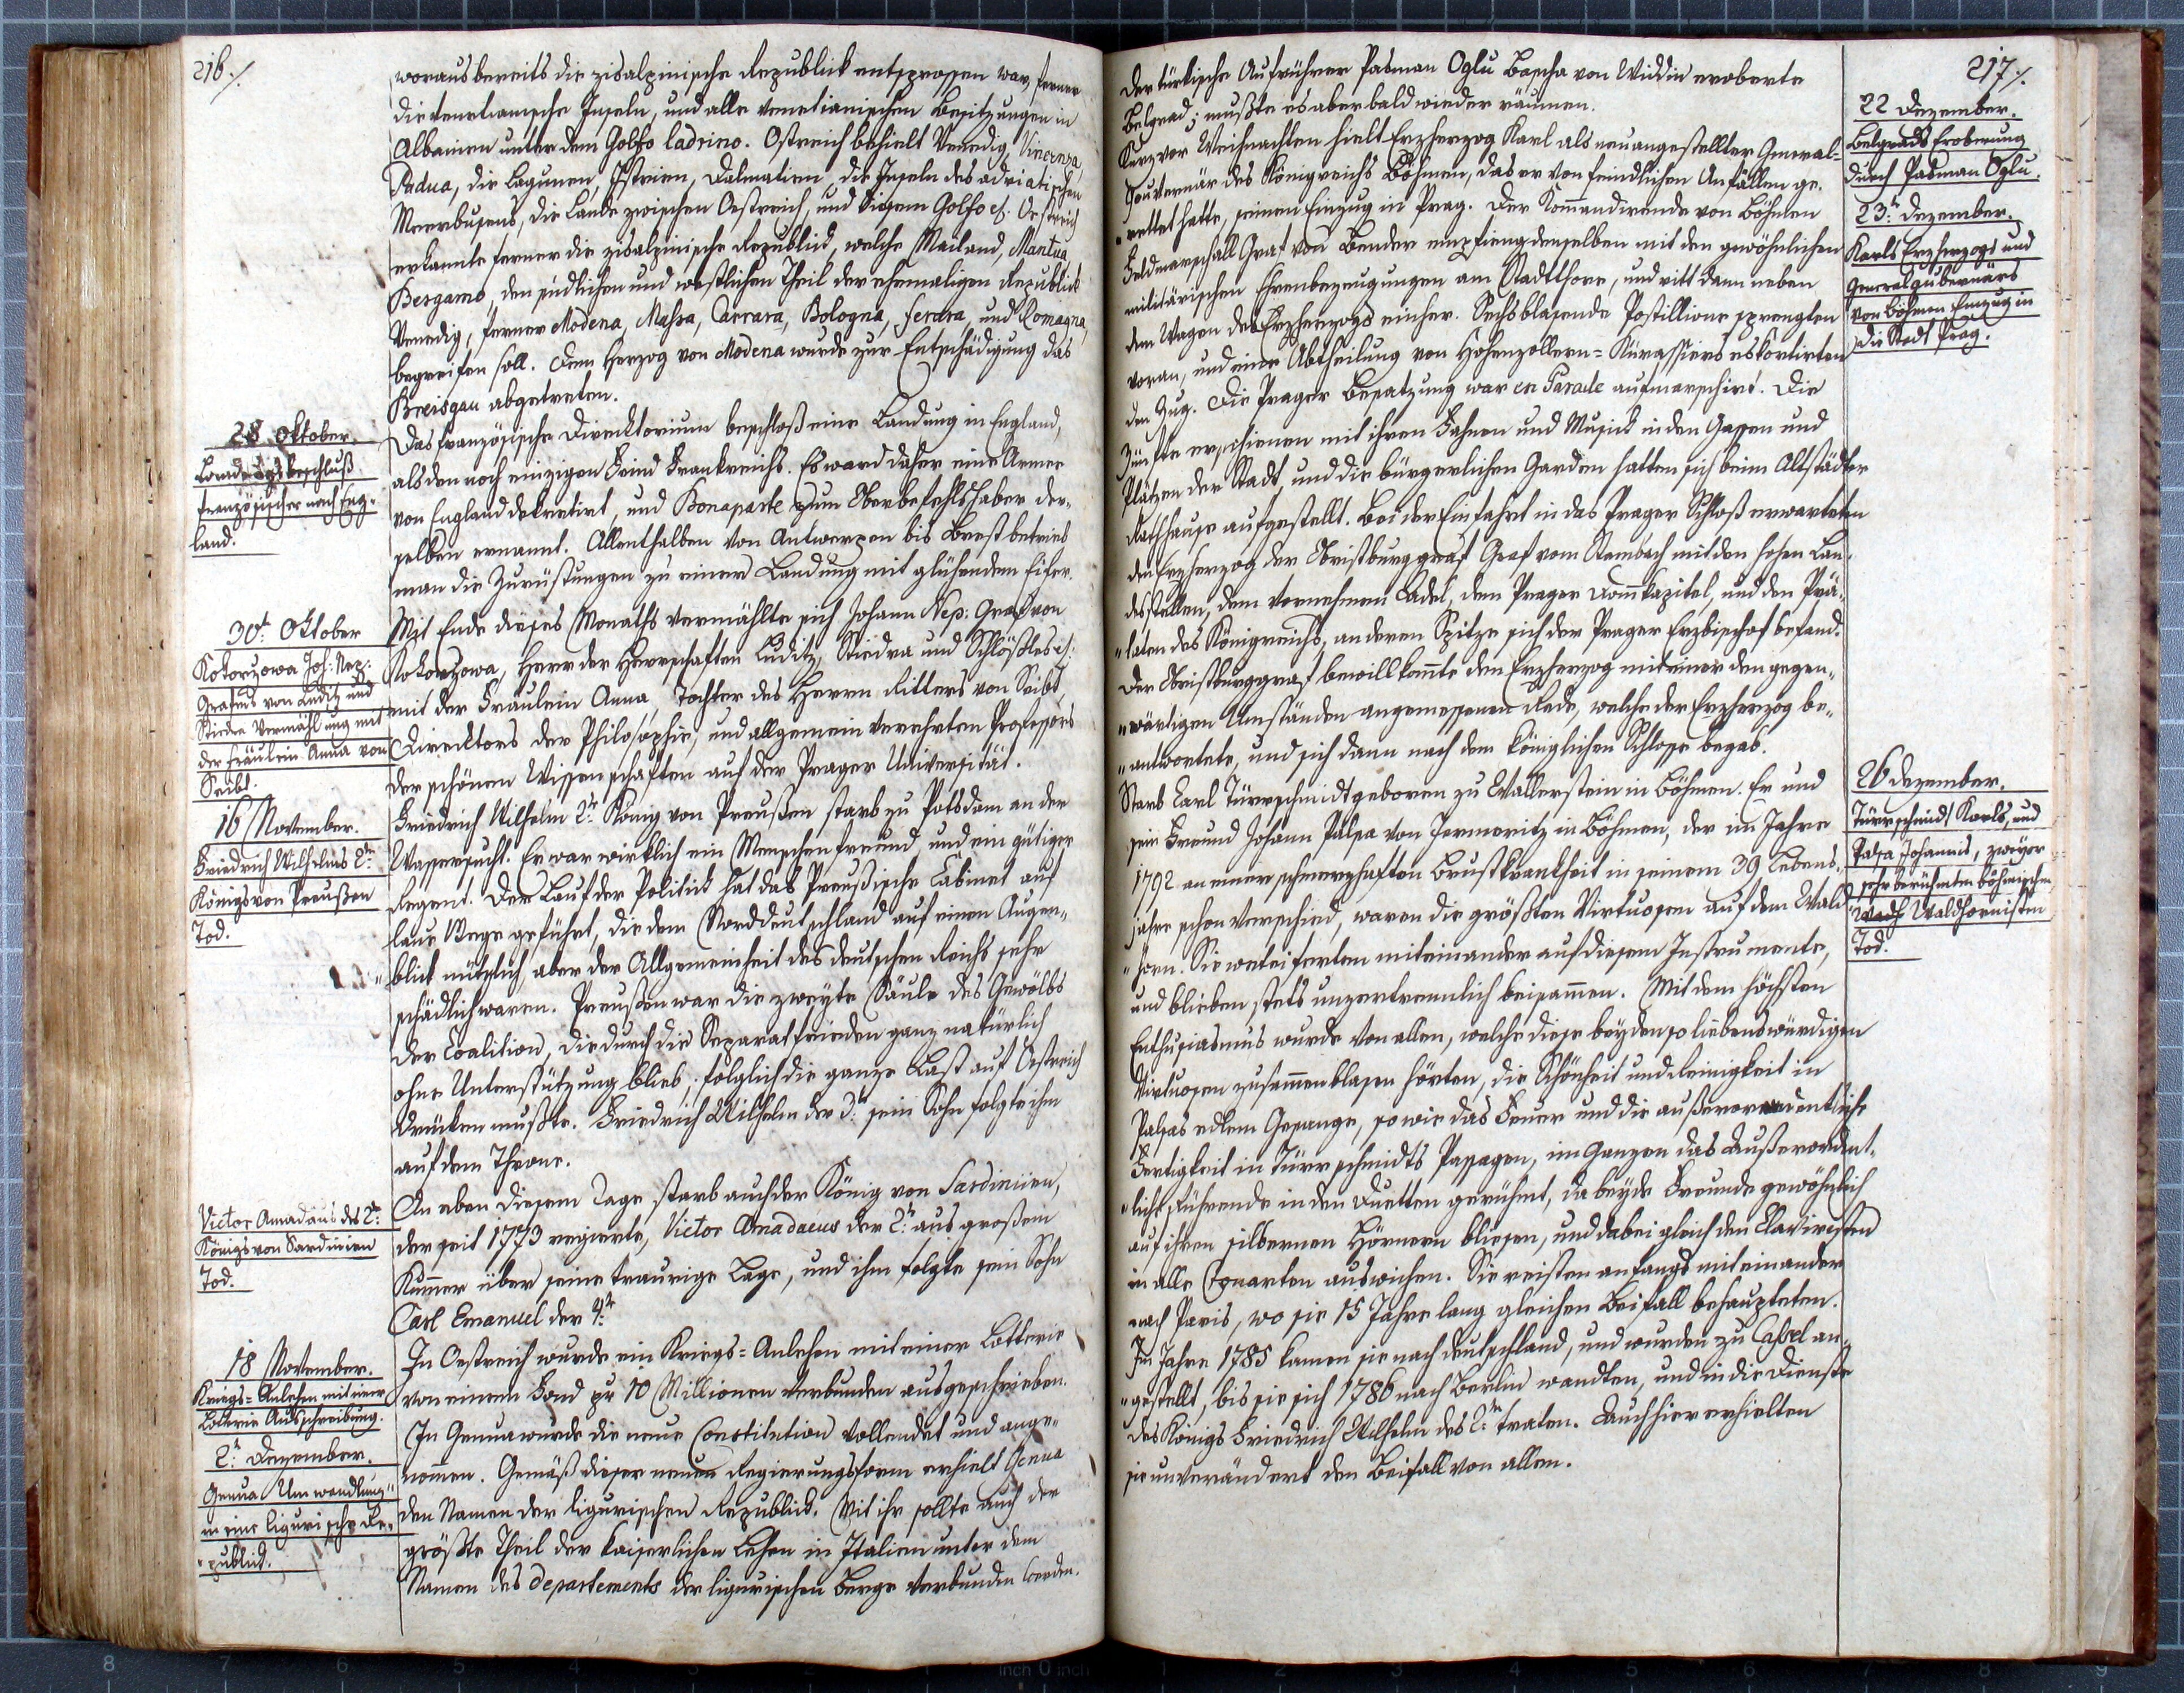 216 ./.
woraus bereits die zisalpinische Republick entsprossen war, ferner
die venetianische Inseln, und alle venetianischen Besitzungen in
Albanien unter dem Golfo ladrino. Ostreich behielt Venedig, Vincenza,
Padua, die Lagunen, Istrien, Dalmatien, die Inseln des adriatischen
Meerbusens, die Lande zwischen Oestreich, und diesem Golfo etc: Oestreich
erkannte ferner die zisalpinische Republick, welche Mailand, Mantua,
Bergamo, den südlichen und westlichen Theil der ehemaligen Republick
Venedig, ferner Modena, Massa, Carrara, Bologna, ferara, und Romagna,
begreifen soll. Dem Herzog von Modena wurde zur Entschädigung das
Breisgau abgetreten.
28 Oktober.
Landungsbeschluß
französischer nach Eng-
land.
Das französische Direcktorium beschloß eine Landung in England,
als den noch einzigen Feind Frankreichs. Es ward daher eine Armee
von England dekretirt, und Bonaparte zum Oberbefehlshaber der-
selben ernannt. Allenthalben von Antwerpen bis Brest betrieb
man die Zurüstungen zu einer Landung mit glühendem Eifer.
30t. Oktober
Kokorzowa Joh: Nep:
Grafens von Luditz und
Stiedra Vermählung mit
der Fräulein Anna von
Seibt.
Mit Ende dieses Monaths vermählte sich Johann Nep: Graf von
Kokorzowa, Herr der Herrschaften Luditz, Stiedra und Schlößles etc:
mit der Fräulein Anna, Tochter des Herrn Ritters von Seibt,
Direcktors der Philosophie, und allgemein verehrten Professors
der schönen Wissenschaften auf der Prager Universität.
16 November.
Friedrich Wilhelms 2tn
Königs von Preußen
Tod.
Friedrich Wilhelm 2tr König von Preußen starb zu Potsdam an der
Wassersucht. Er war wirklich ein Menschenfreund, und ein gütiger
Regent. Der Lauf der Politick hat das Preußische Cabinet auf
Wege geführt, die dem Norddeutschland auf einen Augen-
blick nützlich, aber der Allgemeinheit des deutschen Reichs sehr
schädlich waren. Preußen war die zweyte Säule des Gewölbs
der Coalition, die durch die Separatfrieden ganz natürlich
ohne Unterstützung blieb, folglich die ganze Last auf Oestreich
drücken mußte. Friedrich Wilhelm der 3te sein Sohn folgte ihm
auf dem Throne.
Victor Amadäus des 2tn
Königs von Sardinien
Tod.
An eben diesem Tage starb auch der König von Sardinien,
der seit 1773 regierte, Victor Amadaeus der 2te aus großem
Kummer über seine traurige Lage, und ihm folgte sein Sohn
Carl Emanuel der 4te
18 November.
Kriegs-Anlehen mit einer
Lotterie Ausschreibung.
In Oestreich wurde ein Kriegs-Anlehen mit einer Lotterie
von einem Fond pr 10 Millionen verbunden ausgeschrieben.
2t. Dezember.
Genua Umwandlung
in eine ligurische Re-
publick.
In Genua wurde die neue Constitution vollendet und ange-
nommen. Gemäß dieser neuen Regierungsform erhielt Genua
den Namen der ligurischen Republick. Mit ihr sollte auch der
größte Theil der kaiserlichen Lehen in Italien unter dem
Namen des departements der ligurischen Berge verbunden werden.
217 ./.
22 Dezember.
Belgrads Eroberung
durch Paßman Oglu.
Der türkische Aufrührer Paßman Oglu Bascha von Widdin eroberte
Belgrad; mußte es aber bald wieder räumen.
23t. Dezember.
Karls Erzherzogs und
General Gubernärs
von Böhmen Einzug in
die Stadt Prag.
Kurz vor Weihnachten hielt Erzherzog Karl als neuangestellter General-
Gouvernär des Königreichs Böhmen, das er von feindlichen Anfällen ge-
rettet hatte, seinen Einzug in Prag. Der Kommandirende von Böhmen
Feldmarschall Graf von Bender empfieng denselben mit den gewöhnlichen
militärischen Ehrenbezeugungen am Stadtthore, und ritt dann neben
dem Wagen des Erzherzogs einher. Sechs blasende Postillione sprengten
voran, und eine Abtheilung von Hohenzollern-Kürassiers eskortirten
den Zug. Die Prager Besatzung war en Parade aufmarschirt. Die
Zünfte erschienen mit ihren Fahnen und Musick in den Gassen und
Plätzen der Stadt, und die bürgerlichen Garden hatten sich beim Altstädter
Rathhause aufgestellt. Bei der Einfahrt in das Prager Schloß erwarteten
den Erzherzog der Obristburggraf Graf vom Stambach mit den hohen Lan-
desstellen, dem vornehmen Adel, dem Prager Domkapitel, und den Prä-
laten des Königreichs, an deren Spitze sich der Prager Erzbischof befand.
Der Obristburggraf bewillkommte den Erzherzog mit einer den gegen-
wärtigen Umständen angemessenen Rede, welche der Erzherzog be-
antwortete, und sich dann nach dem königlichen Schlosse begab.
26 Dezember.
Türrschmidt Karls, und
Palsa Johanns, zweyer
sehr berühmten böhmischen
Waldhornisten
Tod.
Starb Carl Türrschmidt geboren zu Wallerstein in Böhmen. Er und
sein Freund Johann Palsa von Jermeritz in Böhmen, der im Jahre
1792 an einer schmerzhaften Brustkrankheit in seinem 39 Lebens-
jahre schon verschied, waren die größten Virtuosen auf dem Wald-
horn. Sie weteiferten miteinander auf diesem Instrumente,
und blieben stets unzertrennlich beisammen. Mit dem höchsten
Enthusiasmus wurde von allen, welche diese beyden so liebenswürdigen
Virtuosen zusammenblasen hörten, die Schönheit und Reinigkeit in
Palsas edlem Gesange, so wie das Feuer und die außerordentliche
Fertigkeit in Türrschmidts Passagen, im Ganzen das Außerordent-
lich Rührende in den Duetten gerühmt, da beyde Freunde gewöhnlich
auf ihren silbernen Hörnern bliesen, und dabei gleich den Claviristen
in alle Tonarten auswichen. Sie reisten anfangs miteinander
nach Paris, wo sie 15 Jahre lang gleichen Beifall behaupteten.
Im Jahre 1785 kamen sie nach Deutschland, und wurden zu Cassel an-
gestellt, bis sie sich 1786 nach Berlin wandten, und in die Dienste
des Königs Friedrich Wilhelm des 2tn traten. Auch hier erhielten
sie unverändert den Beifall von allen.